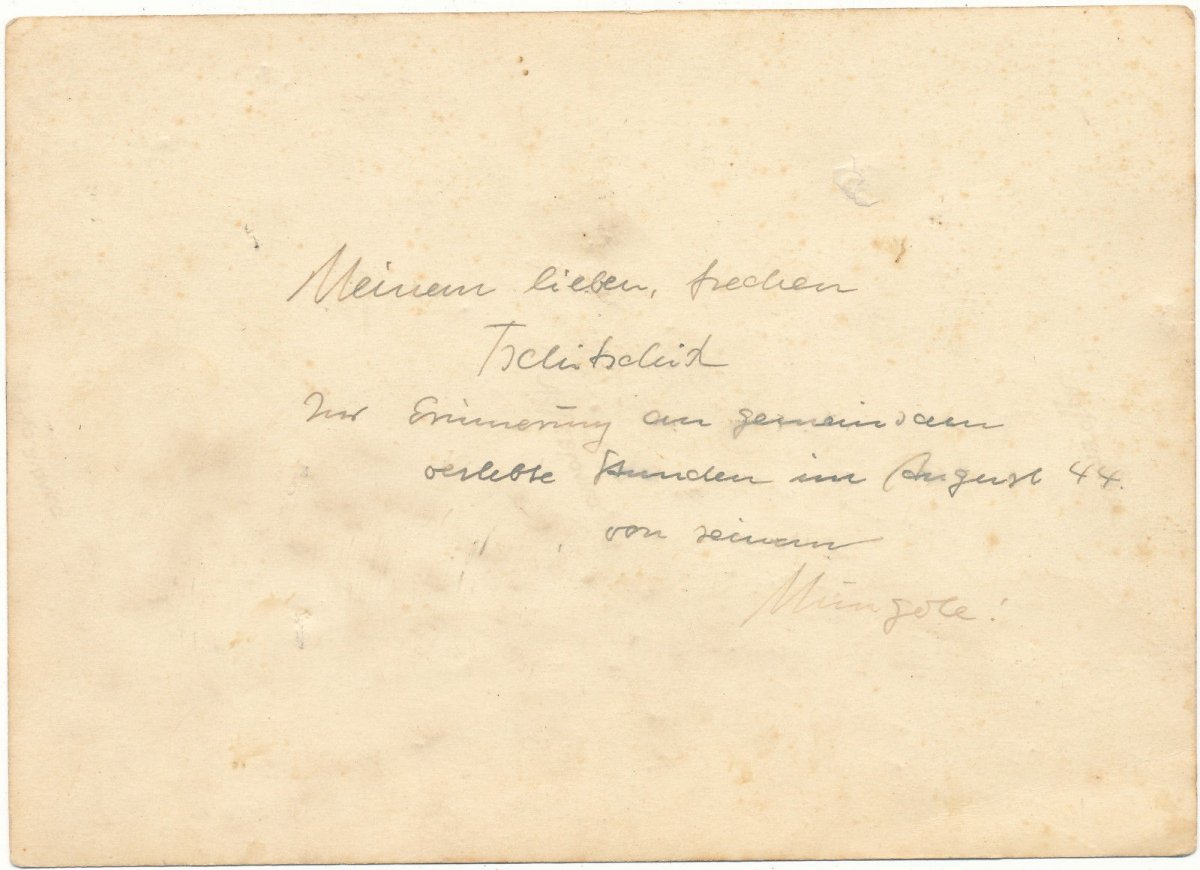 Meinem lieben, frechen
Tschitschick
Zur Erinnerung an gemeinsam
verlebte Stunden im August 44.
von seinem